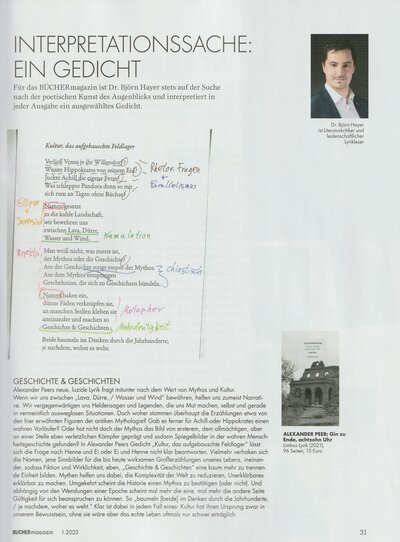 INTERPRETATIONSSACHE:
EIN GEDICHT
Für das BÜCHERmagazin ist Dr. Björn Hayer stets auf der Suche
nach der poetischen Kunst des Augenblicks und interpretiert in
jeder Ausgabe ein ausgewähltes Gedicht.
Dr. Björn Hayer
ist Literaturkritiker und
leidenschaftlicher
Lyrikleser
Kultur, das aufgebauschte Feldlager
Verließ Venus je ihr Willendorf?
Wusste Hippokrates von seinem Eid?
Juckte Achill die eigene Ferse?
Was schleppte Pandora denn so mit
sich rum an Tagen ohne Büchse?
Rhetor. Fragen
+
Parallelismus
Ellipse
+
Inversion
Namen gesetzt
in die kahle Landschaft,
wie bewohnen uns
zwischen Lava, Dürre,
Wasser und Wind.
Kumulation
Man weiß nicht, was zuerst ist,
der Mythos oder die Geschichte?
Aus der Geschichte steigt empor der Mythos.
Aus dem Mythos entspringen
Geschehnisse, die sich zu Geschichten bündeln.
chiastisch
Namen haken ein,
dünne Fäden verknüpfen sie,
an manchen Stellen kleben sie
aneinander und machen so
Geschichte & Geschichten.
Metapher
Mehrdeutigkeit
Beide baumeln im Denken durch die Jahrhunderte,
je nachdem, woher es weht.
GESCHICHTE & GESCHICHTEN
Alexander Peers neue, luzide Lyrik fragt mitunter nach dem Wert von Mythos und Kultur.
Wenn wir uns zwischen „Lava, Dürre, / Wasser und Wind“ bewähren, helfen uns zumeist Narrati-
ve. Wir vergegenwärtigen uns Heldensagen und Legenden, die uns Mut machen, selbst und gerade
in vermeintlich ausweglosen Situationen. Doch woher stammen überhaupt die Erzählungen etwa von
den hier erwähnten Figuren der antiken Mythologie? Gab es ferner für Achill oder Hippokrates einen
wahren Vorläufer? Oder hat nicht doch der Mythos das Bild von ersterem, dem allmächtigen, aber
an einer Stelle eben verletzlichen Kämpfer geprägt und sodann Spiegelbilder in der wahren Mensch-
heitsgeschichte gefunden? In Alexander Peers Gedicht „Kultur, das aufgebauschte Feldlager“ lässt
sich die Frage nach Henne und Ei oder Ei und Henne nicht klar beantworten. Vielmehr verhaken sich
die Namen, jene Sinnbilder für die bis heute wirksamen Großerzählungen unseres Lebens, ineinan-
der, sodass Fiktion und Wirklichkeit, eben, „Geschichte & Geschichten“ eine kaum mehr zu trennen-
de Einheit bilden. Mythen helfen uns dabei, die Komplexität der Welt zu reduzieren, Unerklärbares
erklärbar zu machen. Umgekehrt scheint die Historie einen Mythos zu bestätigen (oder nicht). Und
abhängig von den Wendungen einer Epoche scheint mal mehr die eine, mal mehr die andere Seite
Gültigkeit für sich beanspruchen zu können. So „baumeln [beide] im Denken durch die Jahrhunderte,
/ je nachdem, woher es weht.“ Klar ist dabei in jedem Fall eines: Kultur hat ihren Ursprung zwar in
unserem Bewusstsein, ohne sie wäre aber das echte Leben oftmals nur schwer erträglich.
ALEXANDER PEER: Gin zu
Ende, achtzehn Uhr
Limbus Lyrik (2021),
96 Seiten, 15 Euro
BÜCHERmagazin 1.2023
31